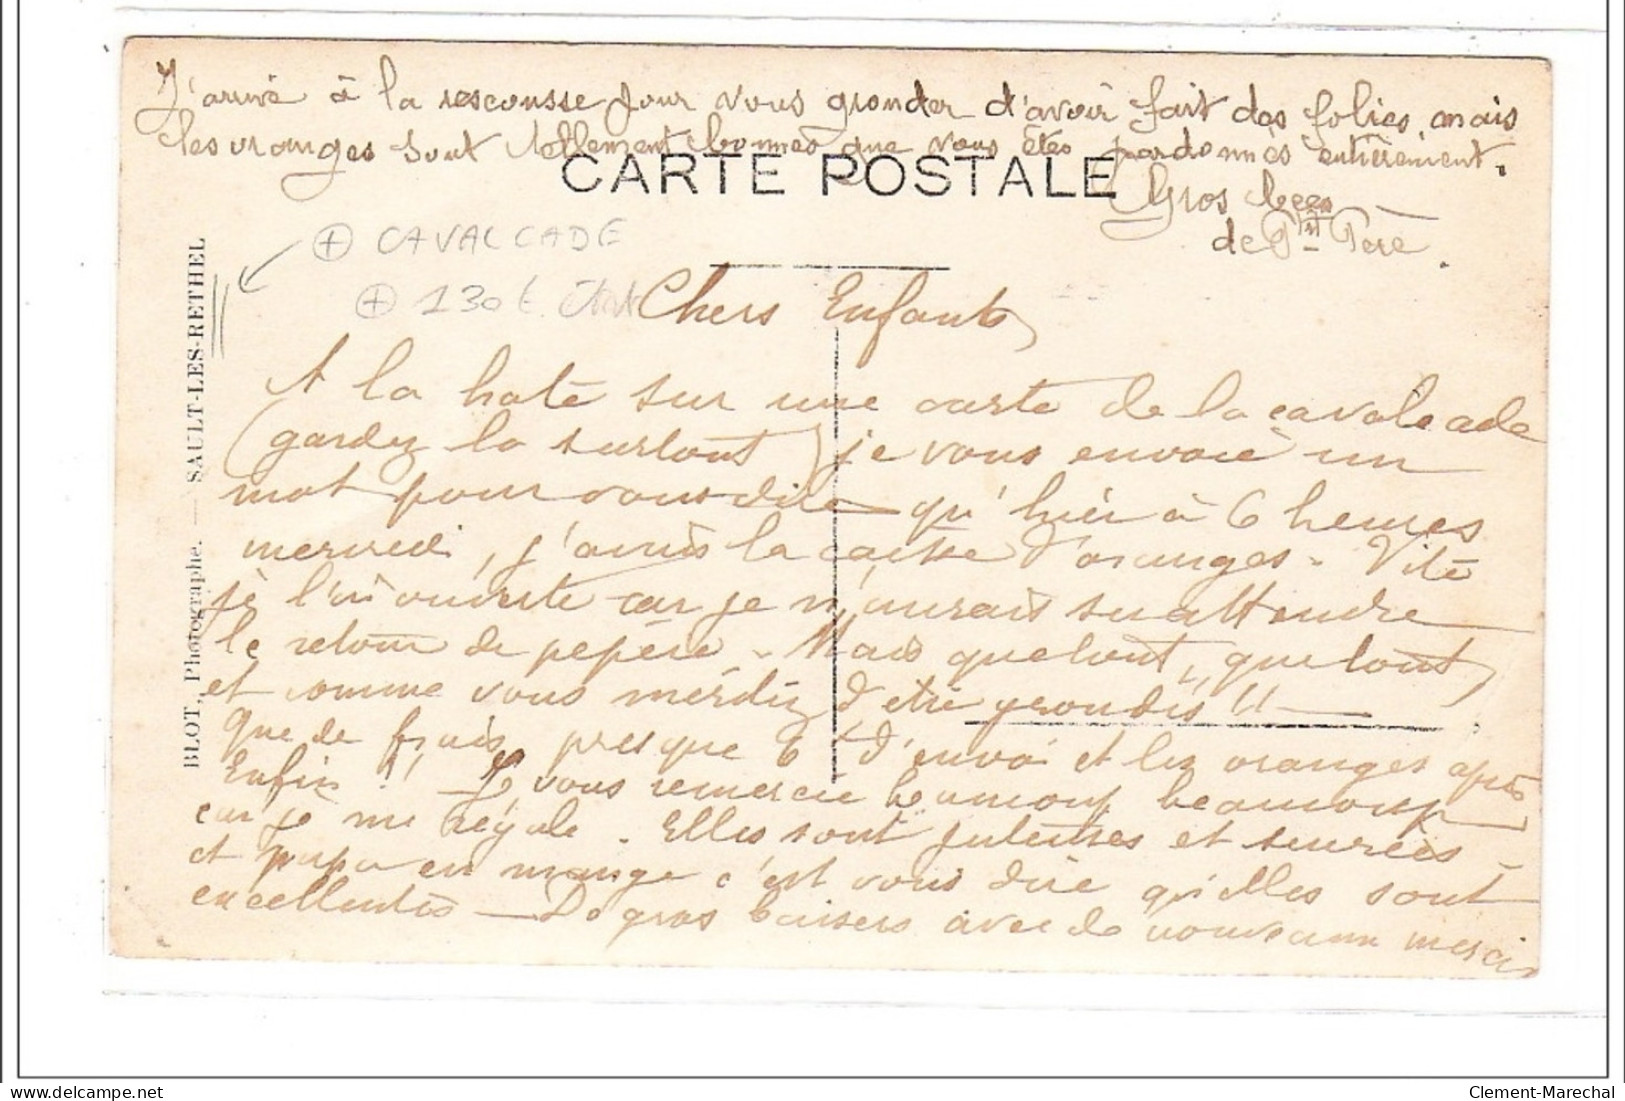 J'arrive à la rescousse pour vous gronder d'avoir fait des folies, mais
les oranges sont tellement bonnes que vous êtes pardonnés entièrement.
Gros becs
de Ptit Père.
CARTE POSTALE
+ CAVALCADE
+ 130 €
BLOT, Photographe. — SAULT-LES-RETHEL
Chers Enfants,
A la hate sur une carte de la cavalcade
(gardez la surtout) je vous envoie un
mot pour vous dire qu'hier à 6 heures
mercredi, j'avais la caisse d'oranges. Vite
je l'ai ouverte car je n'aurais su attendre
le retour de pépère. Mais quelont, quelont,
et comme vous méritez d'être grondés !!
Que de frais, presque 6 f d'envoi et les oranges après
Enfin !! Je vous remercie beaucoup beaucoup
car je me régale. Elles sont juteuses et sucrées
et papa en mange c'est vous dire qu'elles sont
excellentes — De gros baisers avec de nouveaux mercis
Clement-Marechal
www.delcampe.net